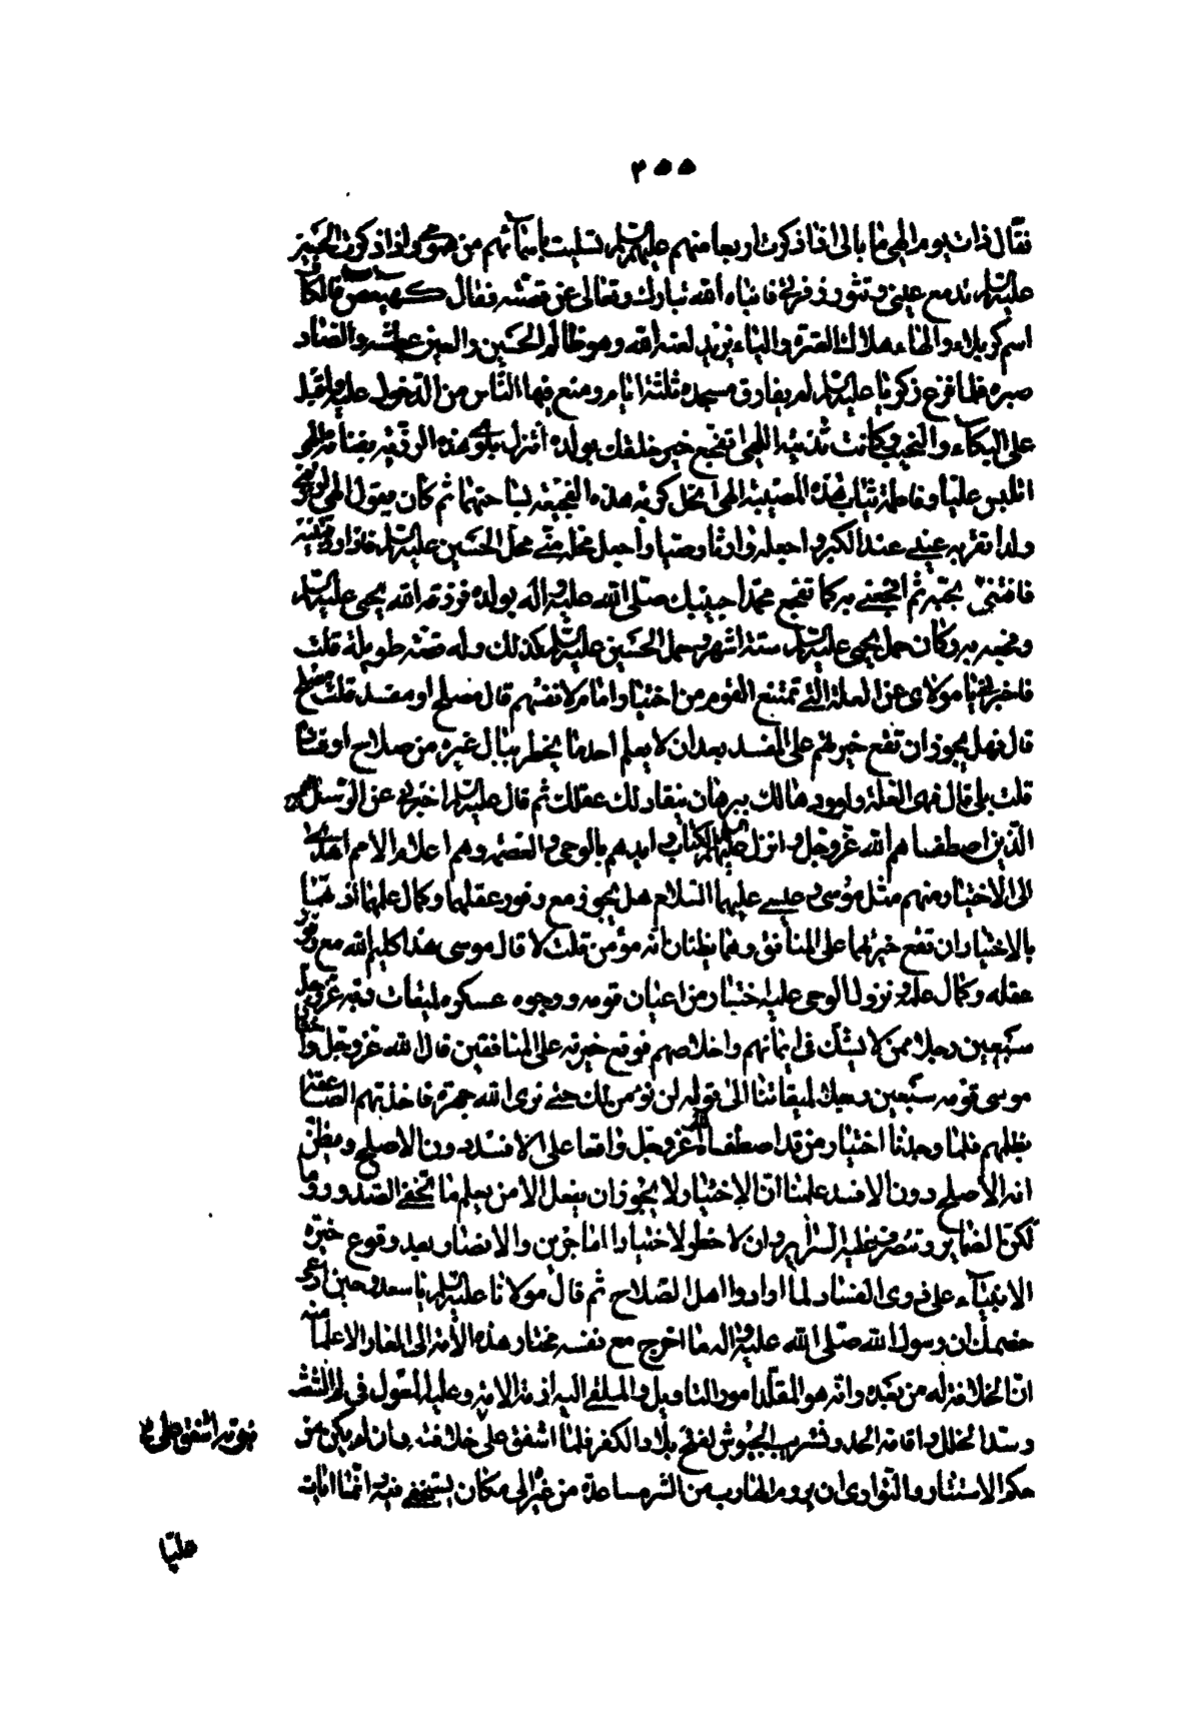 ٢٥٥
فقال ذات يوم الهى ما بالى اذا ذكرت اربعا منهم عليهم السلام تسليت باسمائهم من همومى واذا ذكرت الحسين
عليه السلام تدمع عينى وتثور زفرتى فانباه الله تبارك وتعالى عن قصته فقال كهيعص فالكاف
اسم كربلاء والهاء هلاك العترة والياء يزيد لعنه الله وهو ظالم الحسين والعين عطشه والصاد
صبره فلما سمع زكريا عليه السلام لم يفارق مسجده ثلثة ايام ومنع فيها الناس من الدخول عليه واقبل
على البكاء والنحيب وكانت ندبته اللهى اتفجع خير خلقك بولده اتنزل بلوى هذه الرزية بفنائه الهى
اتلبس عليا وفاطمة ثياب هذه المصيبة الهى اتحل كربة هذه الفجيعة بساحتهما ثم كان يقول الهى ارزقنى
ولدا تقر به عينى عند الكبر واجعله وارثا وصيا واجعل محله منى محل الحسين عليه السلام فاذا رزقتنيه
فافتنى بحبه ثم افجعنى به كما تفجع محمدا حبيبك صلى الله عليه واله بولده فرزقه الله يحيى عليه السلام
وفجعه به وكان حمل يحيى عليه السلام ستة اشهر وحمل الحسين عليه السلام كذلك وله قصة طويلة قلت
فاخبرنى يا مولاى عن العلة التى تمنع القوم من اختيار امام لانفسهم قال مصلح او مفسد قلت مصلح
قال فهل يجوز ان تقع خيرتهم على المفسد بعد ان لا يعلم احد ما يخطر ببال غيره من صلاح او فساد
قلت بلى قال فهى العلة واوردها لك ببرهان ينقاد لك عقلك ثم قال عليه السلام اخبرنى عن الرسل
الذين اصطفاهم الله عز وجل وانزل عليهم الكتاب وايدهم بالوحى والعصمة وهم اعلام الامم اهدى
الى الاختيار منهم مثل موسى وعيسى عليهما السلام هل يجوز مع وفور عقلهما وكمال علمهما اذ هما
بالاختيار ان تقع خيرتهما على المنافق وهما يظنان انه مؤمن قلت لا قال موسى هذا كليم الله مع وفور
عقله وكمال علمه ونزول الوحى عليه اختار من اعيان قومه ووجوه عسكره لميقات ربه عز وجل
سبعين رجلا ممن لا يشك فى ايمانهم واخلاصهم فوقع خيرته على المنافقين قال الله عز وجل واختار
موسى قومه سبعين رجلا لميقاتنا الى قوله لن نؤمن لك حتى نرى الله جهرة فاخذتهم الصاعقة
بظلمهم فلما وجدنا اختيار من قد اصطفاه الله عز وجل واقعا على الافسد دون الاصلح ويظن
انه الاصلح دون الافسد علمنا ان الاختيار لا يجوز ان يفعل الا من يعلم ما تخفى الصدور وما
تكن الضماير وتتصرف عليه السراير وان لا خطر لاختيار المهاجرين والانصار بعد وقوع خيرة
الانبياء على ذوى الفساد لما ارادوا اهل الصلاح ثم قال مولانا عليه السلام يا سعد وحين ادعى
خصمك ان رسول الله صلى الله عليه واله ما اخرج مع نفسه مختار هذه الامة الى الغار الا علما منه
ان الخلافة له من بعده وانه هو المقلد امور التاويل والملقى اليه ازمة الامة وعليه المعول فى لم الشعث
وسد الخلل واقامة الحدود وتسريب الجيوش لفتح بلاد الكفر فلما اشفق على خلافته وان لم يكن من
حكم الاستتار والتوارى ان يروم الهارب من الشر مساعدة من غيره الى مكان يستخفى فيه وانما ابات
نبوته اشفق على
عليا